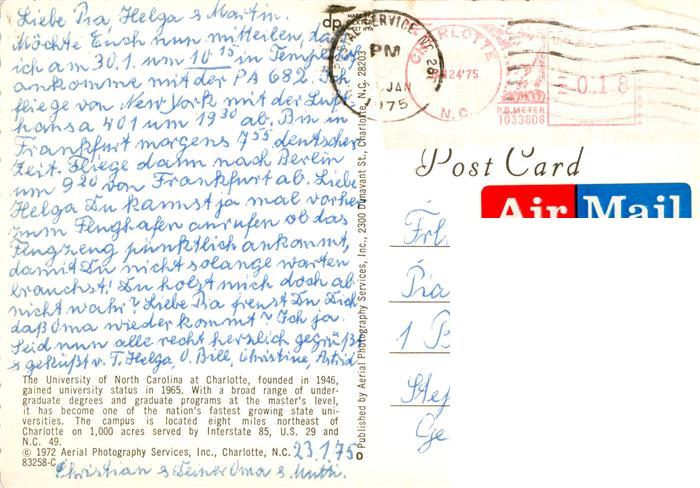 Liebe Pia Helga & Martin.
Möchte Euch nun mitteilen, daß
ich am 30.1. um 10 15 in Tempelhof
ankomme mit der PA 682. Ich
fliege von New York mit der Luft-
hansa 401 um 1930 ab. Bin in
Frankfurt morgens 7 55 deutscher
Zeit. Fliege dann nach Berlin
um 9 20 von Frankfurt ab. Liebe
Helga Du kannst ja mal vorher
zum Flughafen anrufen ob das
Flugzeug pünktlich ankommt,
damit Du nicht solange warten
brauchst! Du holst mich doch ab
nicht wahr? Liebe Pia freust Du Dich
daß Oma wieder kommt? Ich ja.
Seid nun alle recht herzlich gegrüßt
& geküßt v. T. Helga, O. Bill, Christine, Astrid
The University of North Carolina at Charlotte, founded in 1946,
gained university status in 1965. With a broad range of under-
graduate degrees and graduate programs at the master's level,
it has become one of the nation's fastest growing state uni-
versities. The campus is located eight miles northeast of
Charlotte on 1,000 acres served by Interstate 85, U.S. 29 and
N.C. 49.
© 1972 Aerial Photography Services, Inc., Charlotte, N.C.
83258-C
23.1.75
Christian & Deiner Oma & Mutti.
Published by Aerial Photography Services, Inc., 2300 Dunavant St., Charlotte, N.C. 28203
dp
SERVICE NC 282
PM
JAN
1975
CHARLOTTE
JAN24'75
N.C.
P.B. METER
1033806
0.18
Post Card
Air Mail
Frl.
Pia
1 B
Ste
Ge